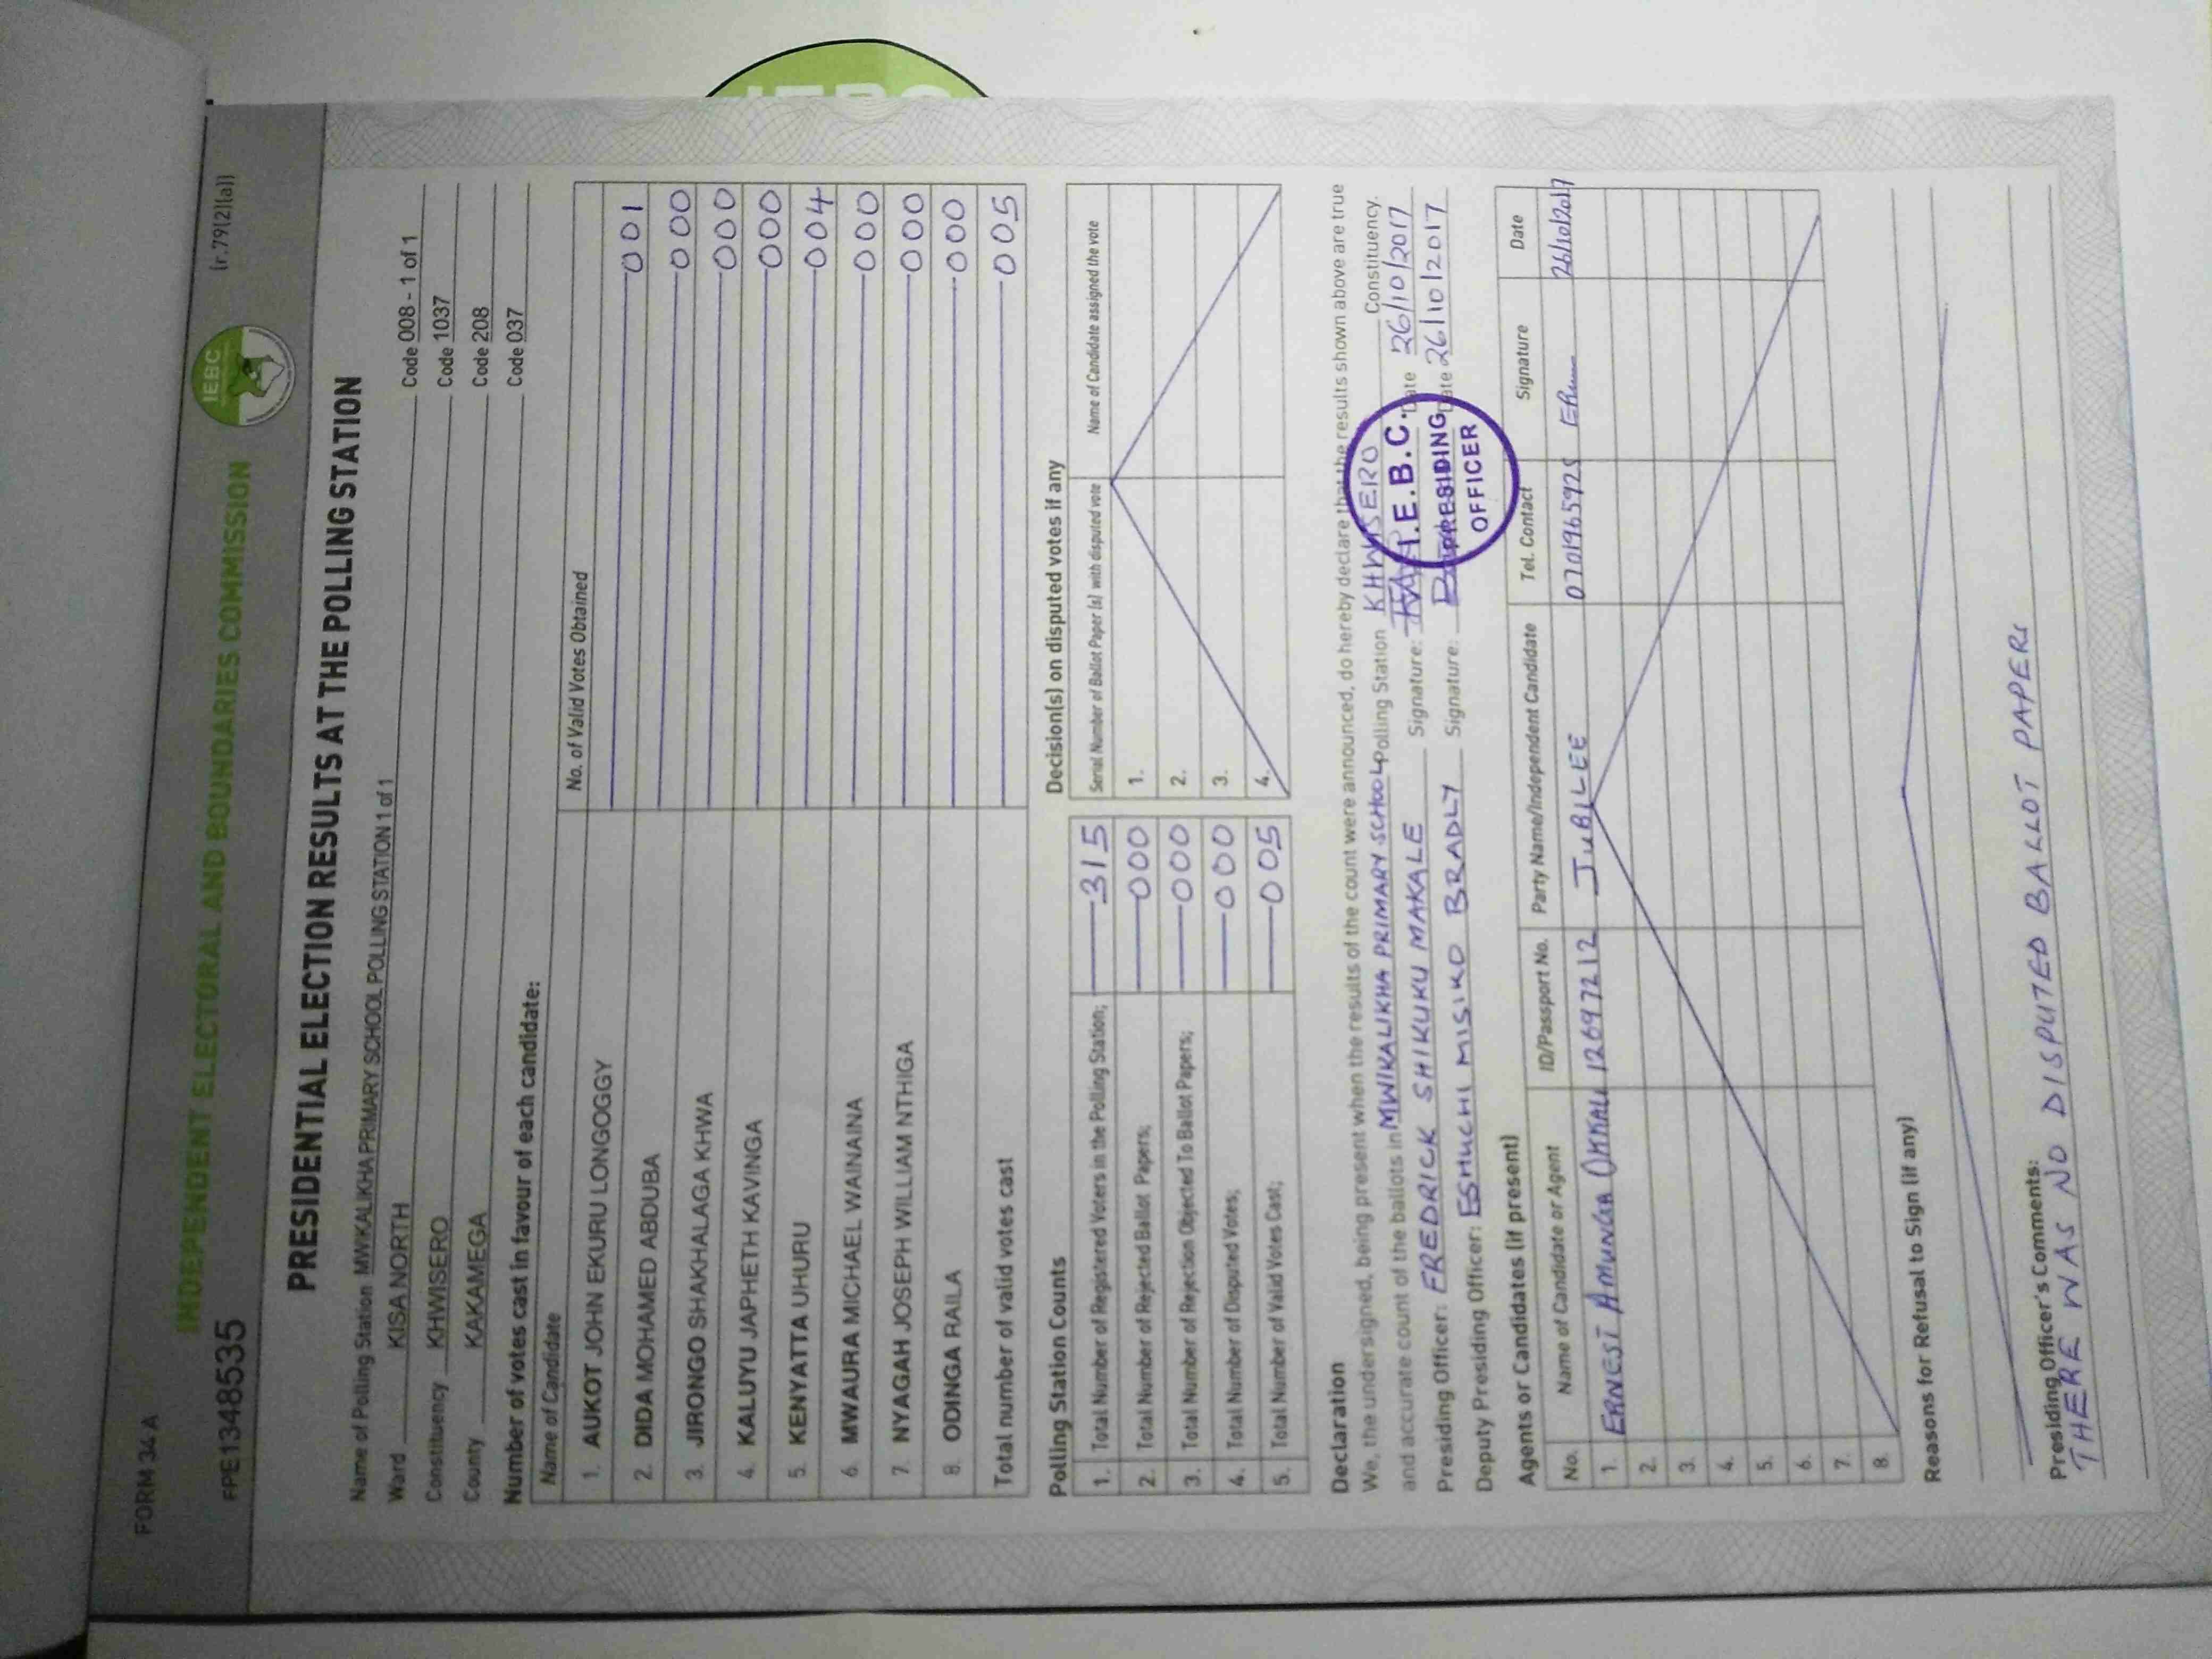 FORM 34 A
INDEPENDENT ELECTORAL AND BOUNDARIES COMMISSION
IEBC
FPE1348535
(r.79(2)(a))
PRESIDENTIAL ELECTION RESULTS AT THE POLLING STATION
Name of Polling Station MWIKALIKHA PRIMARY SCHOOL POLLING STATION 1 of 1 Code 008 - 1 of 1
Ward KISA NORTH Code 1037
Constituency KHWISERO Code 208
County KAKAMEGA Code 037
Number of votes cast in favour of each candidate:
Name of Candidate No. of Valid Votes Obtained
1. AUKOT JOHN EKURU LONGOGGY 001
2. DIDA MOHAMED ABDUBA 000
3. JIRONGO SHAKHALAGA KHWA 000
4. KALUYU JAPHETH KAVINGA 000
5. KENYATTA UHURU 004
6. MWAURA MICHAEL WAINAINA 000
7. NYAGAH JOSEPH WILLIAM NTHIGA 000
8. ODINGA RAILA 000
Total number of valid votes cast 005
Polling Station Counts
1. Total Number of Registered Voters in the Polling Station; 315
2. Total Number of Rejected Ballot Papers; 000
3. Total Number of Rejection Objected To Ballot Papers; 000
4. Total Number of Disputed Votes; 000
5. Total Number of Valid Votes Cast; 005
Decision(s) on disputed votes if any
Serial Number of Ballot Paper (s) with disputed vote Name of Candidate assigned the vote
1.
2.
3.
4.
Declaration
We, the undersigned, being present when the results of the count were announced, do hereby declare that the results shown above are true
and accurate count of the ballots in MWIKALIKHA PRIMARY SCHOOL Polling Station KHWISERO Constituency.
Presiding Officer: FREDRICK SHIKUKU MAKALE Signature: Date 26/10/2017
Deputy Presiding Officer: ESHUCHI MISIKO BRADLY Signature: Date 26/10/2017
I.E.B.C.
PRESIDING
OFFICER
Agents or Candidates (if present)
No. Name of Candidate or Agent ID/Passport No. Party Name/Independent Candidate Tel. Contact Signature Date
1. ERNEST 12697212 JUBILEE 0701965925 26/10/2017
2.
3.
4.
5.
6.
7.
8.
Reasons for Refusal to Sign (if any)
Presiding Officer's Comments:
THERE WAS NO DISPUTED BALLOT PAPERS